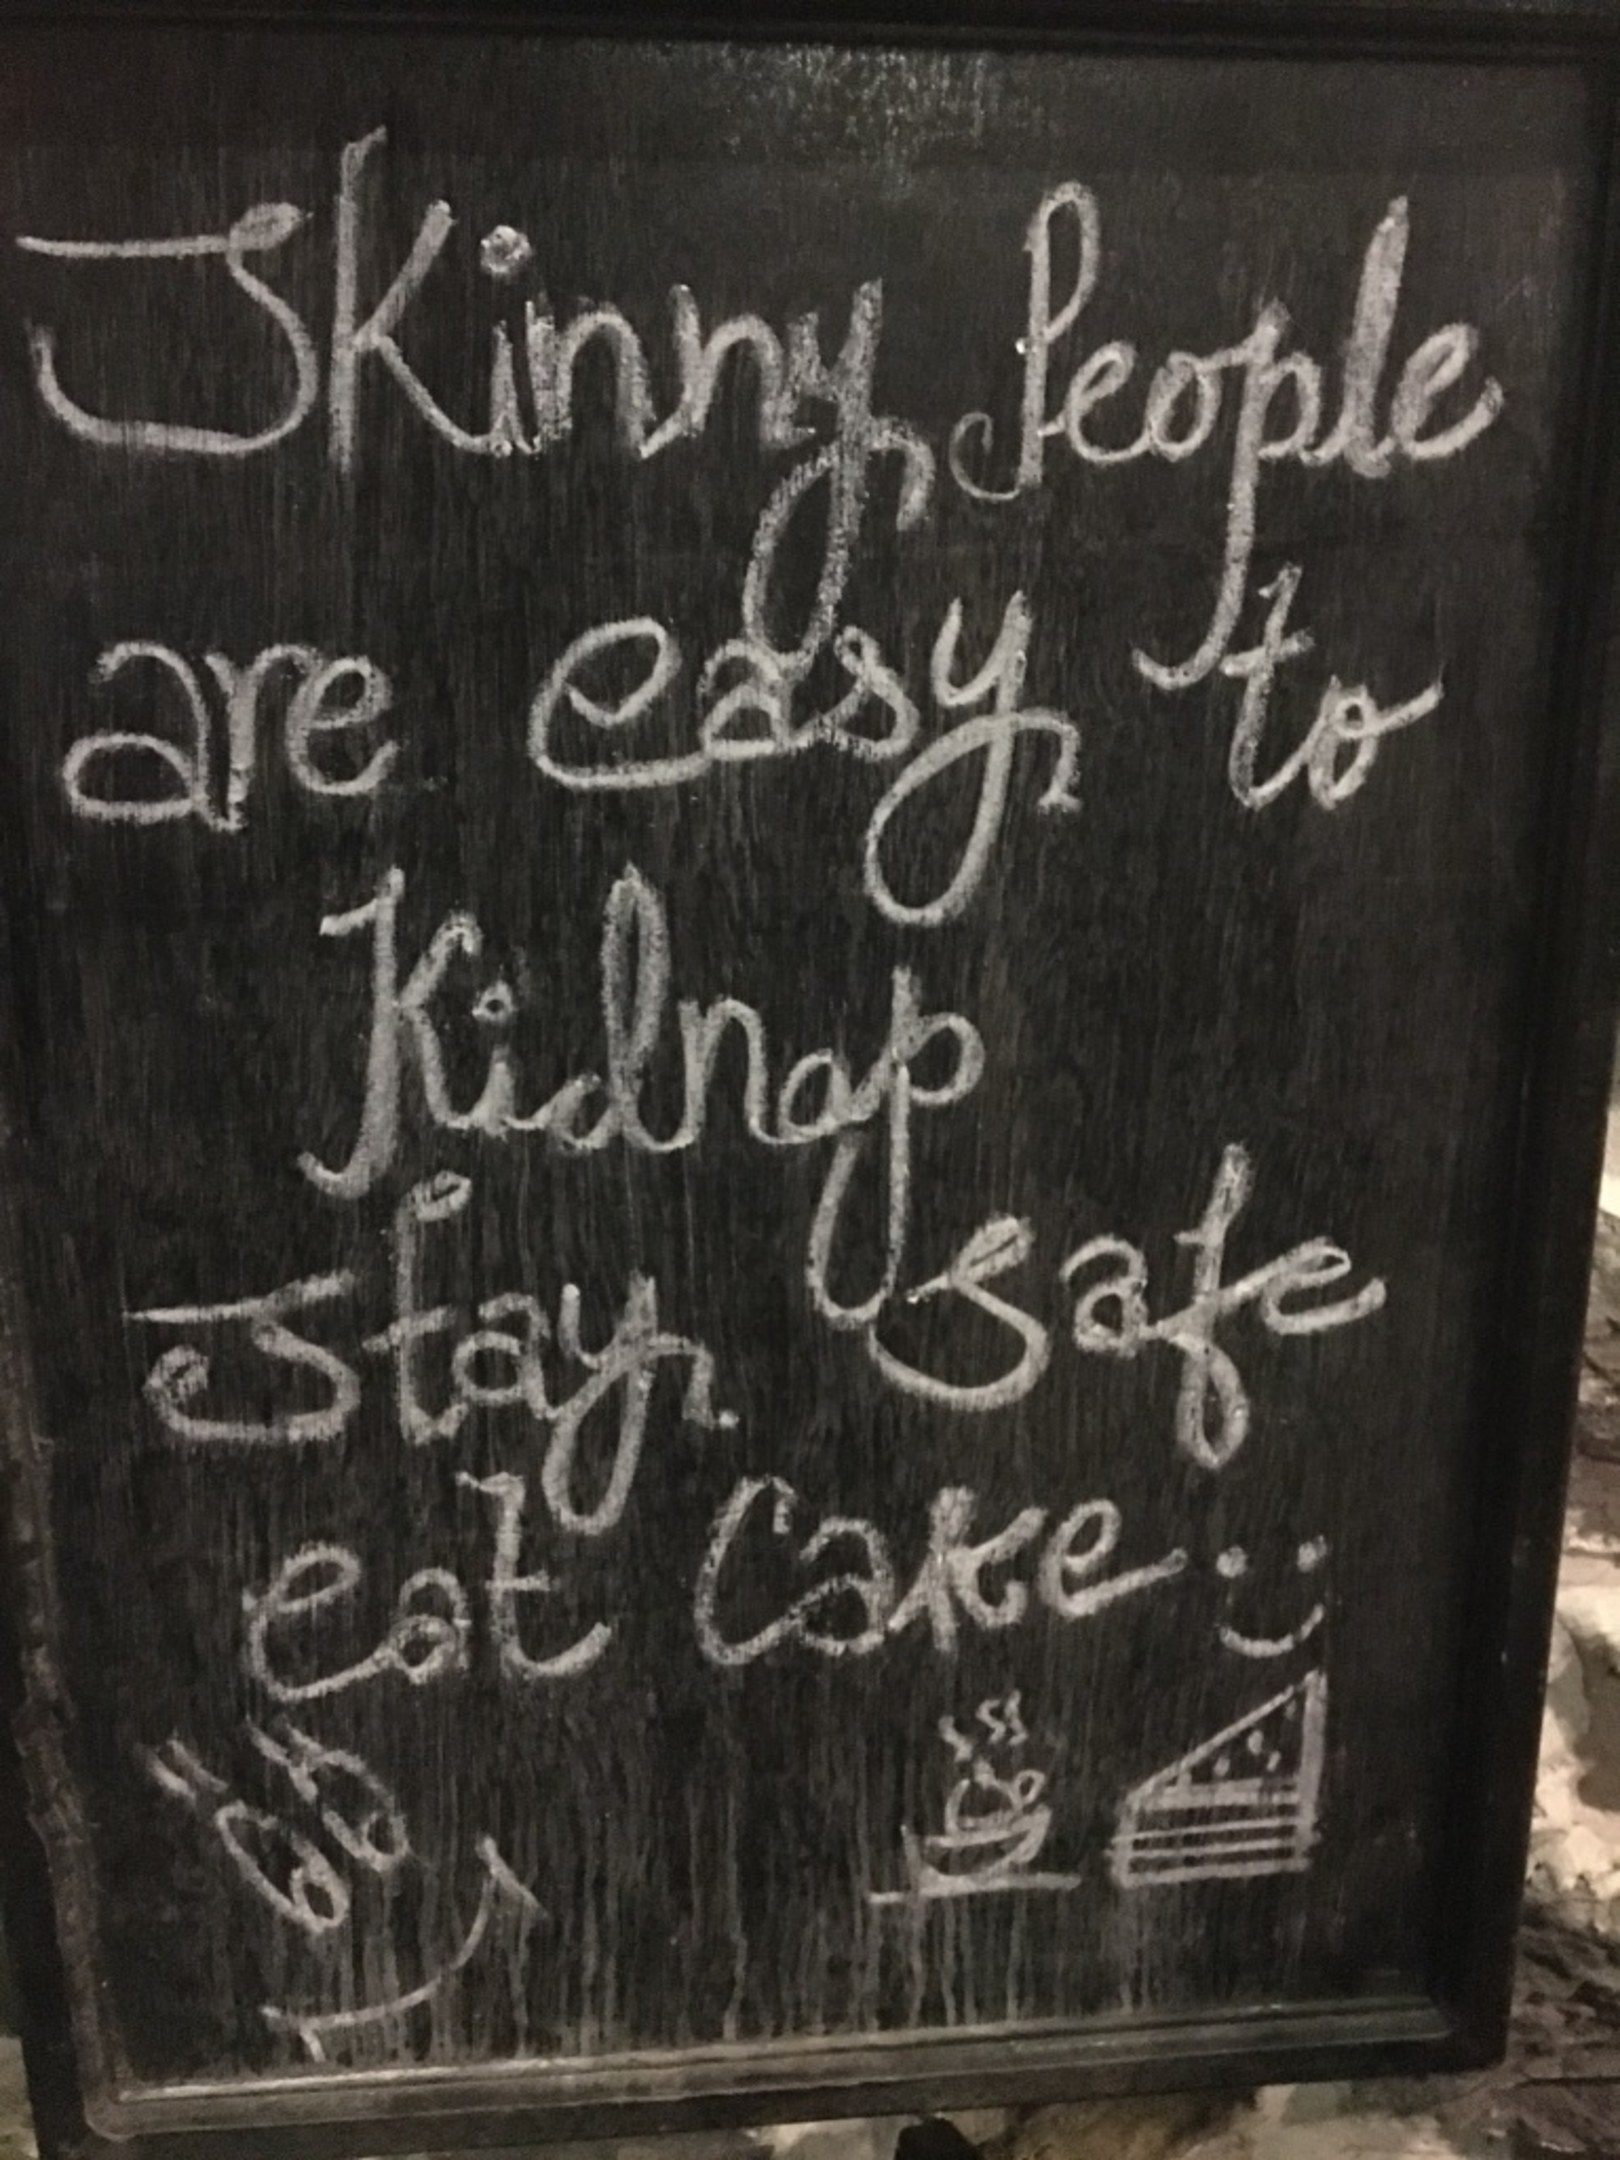 Skinny People
are easy to
Kidnap
Stay safe
eat Cake